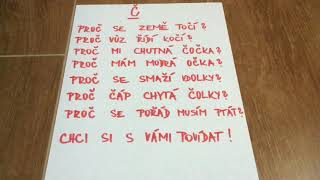 Č
PROČ SE ZEMĚ TOČÍ?
PROČ VŮZ ŘÍDÍ KOČÍ?
PROČ MI CHUTNÁ ČOČKA?
PROČ MÁM MODRÁ OČKA?
PROČ SE SMAŽÍ VDOLKY?
PROČ ČÁP CHYTÁ ČOLKY?
PROČ SE POŘÁD MUSÍM PTÁT?
CHCI SI S VÁMI POVÍDAT!